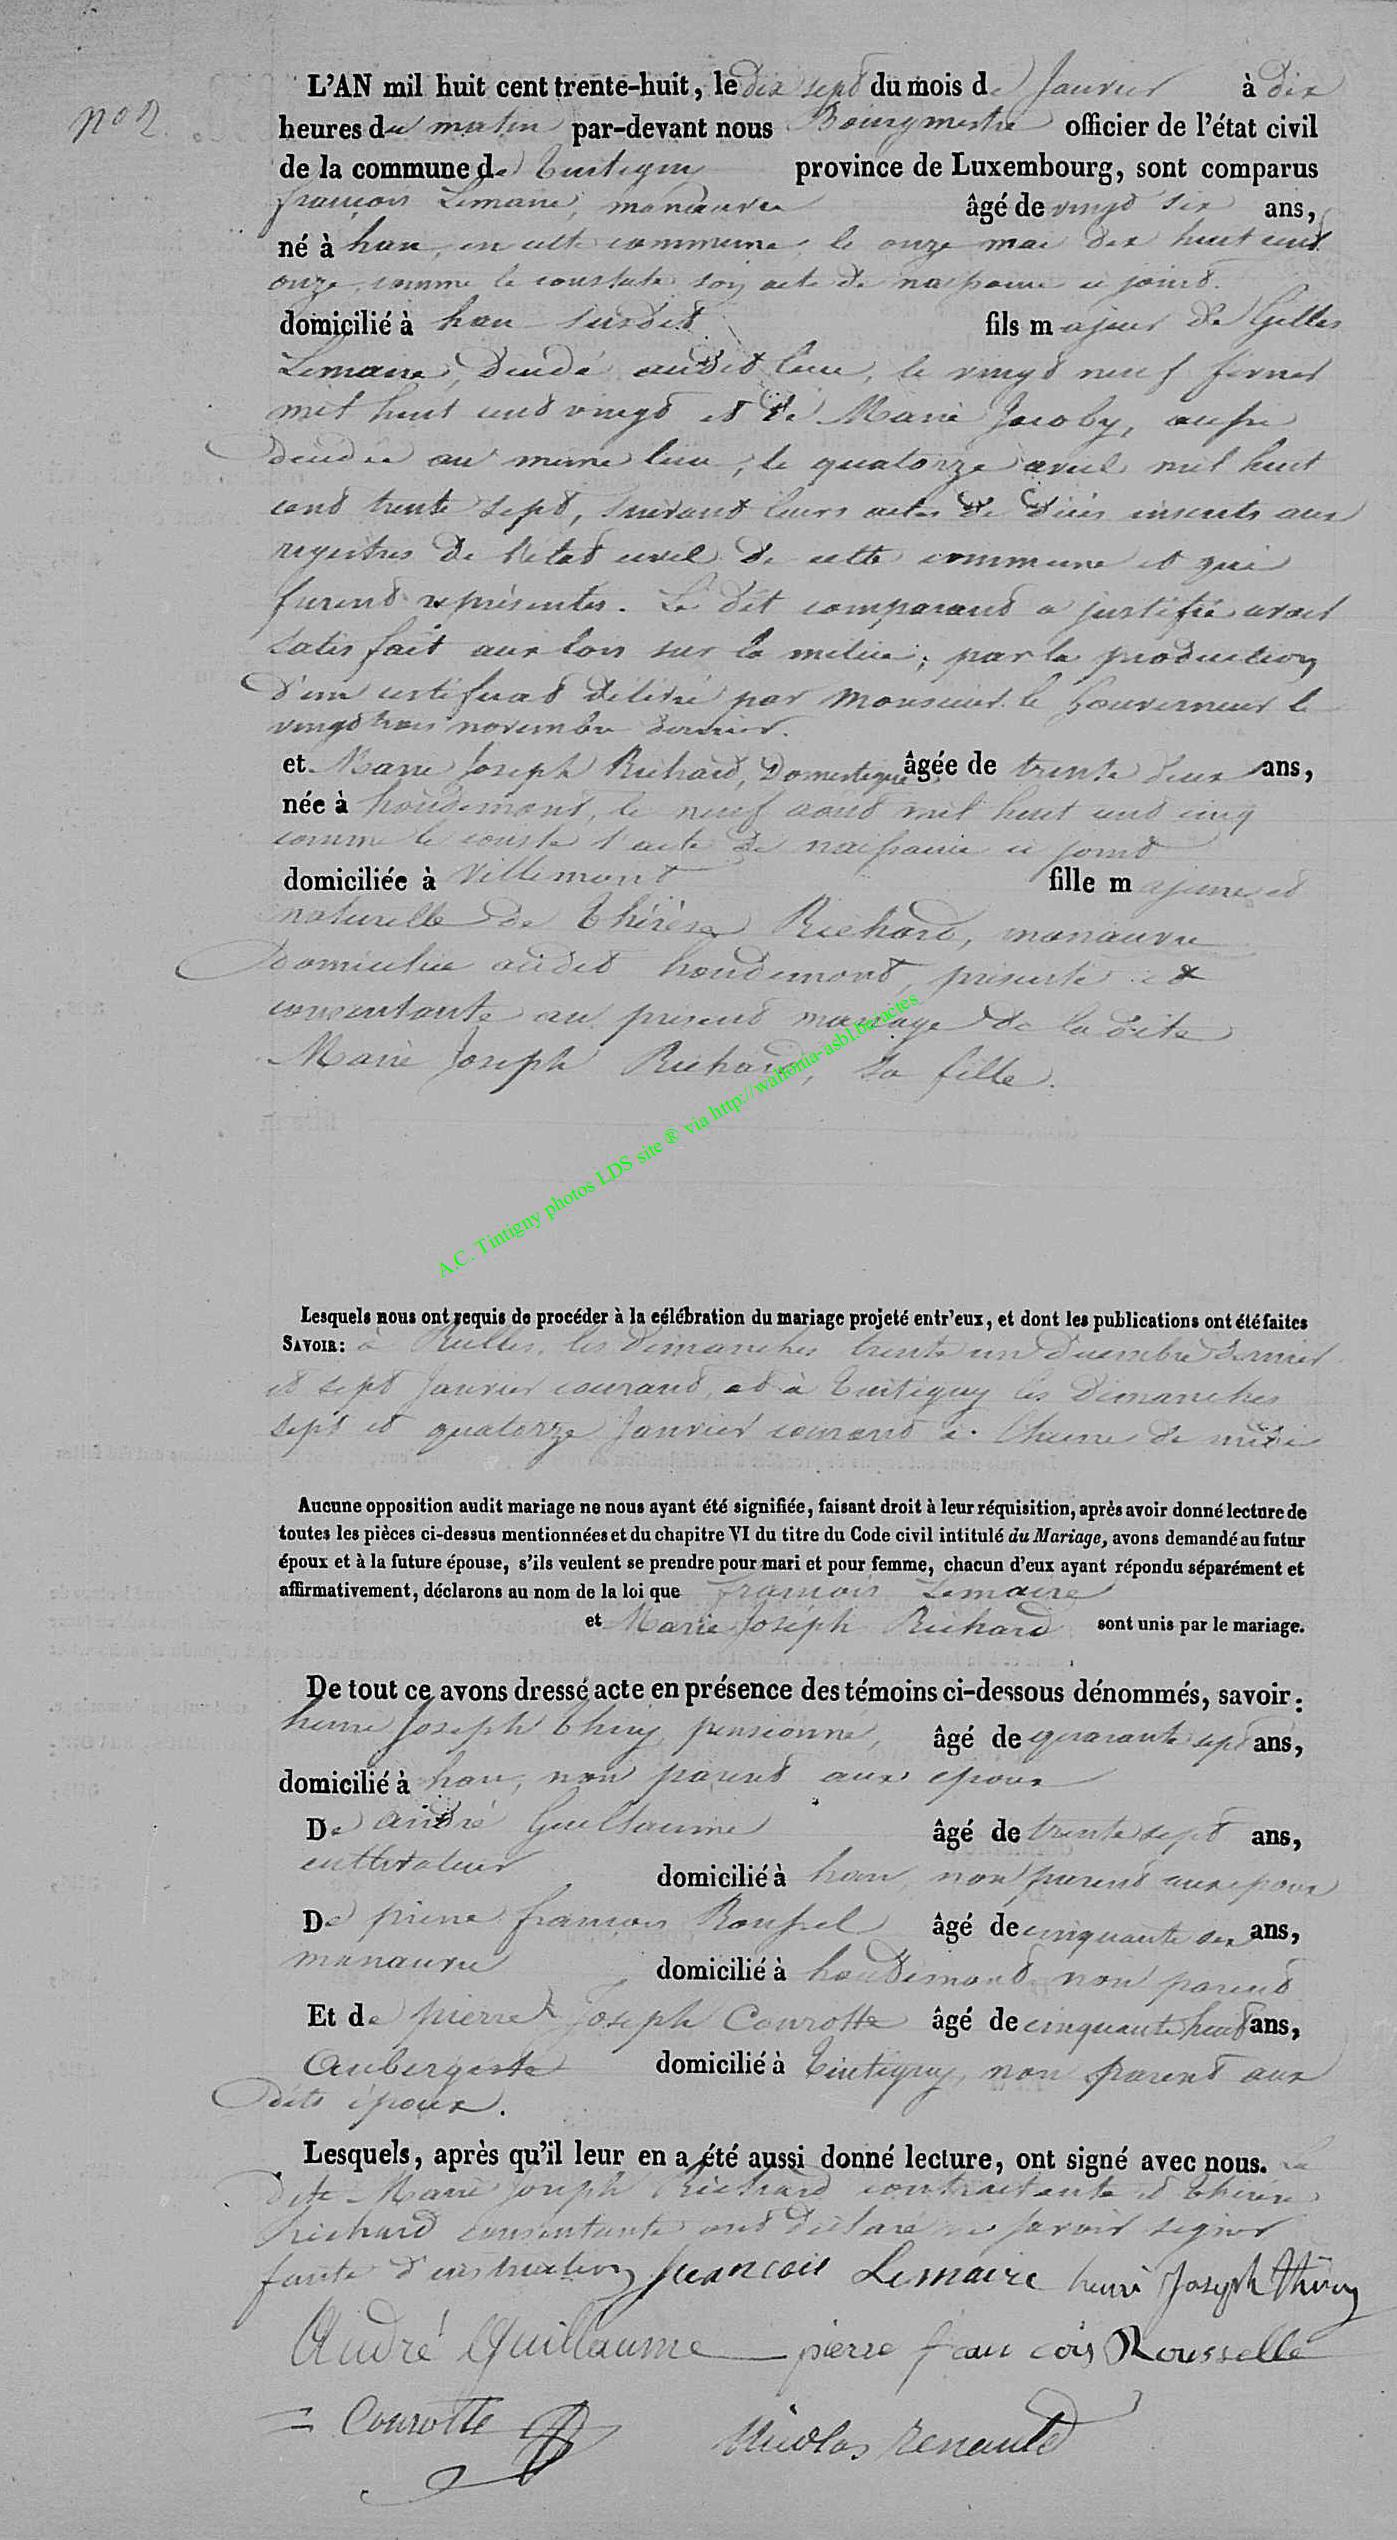 n° 2.
L'AN mil huit cent trente-huit, le dix sept du mois de Janvier à dix
heures du matin par-devant nous Bourgmestre officier de l'état civil
de la commune de Tintigny province de Luxembourg, sont comparus
françois Lemaire, manœuvre âgé de vingt six ans,
né à han, en cette commune, le onze mai dix huit cent
onze, comme le constate son acte de naissance ci joint.
domicilié à han susdit fils majeur de Gilles
Lemaire, décédé audit lieu, le vingt neuf février
mil huit cent vingt et de Marie Jacoby, aussi
décédée au même lieu, le quatorze avril mil huit
cent trente sept, suivant leurs actes de décès inscrits aux
registres de l'état civil de cette commune et qui
furent représentés. Le dit comparant a justifié avoir
satisfait aux lois sur la milice, par la production
d'un certificat délivré par Monsieur le Gouverneur le
vingt trois novembre dernier.
et Marie Joseph Richard, Domestique âgée de trente deux ans,
née à houdemont, le neuf août mil huit cent cinq
comme le conste l'acte de naissance ci joint
domiciliée à Villemont fille majeure et
naturelle de Thérèse Richard, manœuvre
domiciliée audit houdemont, présente et
consentante au présent mariage de la dite
Marie Joseph Richard, sa fille.
A.C. Tintigny photos LDS site ® via http://wallonia-asbl.be/actes
Lesquels nous ont requis de procéder à la célébration du mariage projeté entr'eux, et dont les publications ont été faites
SAVOIR: à Rulles, les dimanches trente un décembre dernier
et sept Janvier courant, et à Tintigny les dimanches
sept et quatorze Janvier courant à l'heure de midi
Aucune opposition audit mariage ne nous ayant été signifiée, faisant droit à leur réquisition, après avoir donné lecture de
toutes les pièces ci-dessus mentionnées et du chapitre VI du titre du Code civil intitulé du Mariage, avons demandé au futur
époux et à la future épouse, s'ils veulent se prendre pour mari et pour femme, chacun d'eux ayant répondu séparément et
affirmativement, déclarons au nom de la loi que françois Lemaire
et Marie Joseph Richard sont unis par le mariage.
De tout ce avons dressé acte en présence des témoins ci-dessous dénommés, savoir:
henri Joseph Thiry, pensionné, âgé de quarante sept ans,
domicilié à han, non parent aux époux
De andré Guillaume âgé de trente sept ans,
cultivateur domicilié à han non parent aux époux
De pierre françois Roussel âgé de cinquante six ans,
manœuvre domicilié à houdemont non parent
Et de pierre Joseph Courotte âgé de cinquante huit ans,
Aubergiste domicilié à Tintigny, non parent aux
dits époux.
Lesquels, après qu'il leur en a été aussi donné lecture, ont signé avec nous. La
dite Marie Joseph Richard contractante et Thérèse
Richard consentante ont déclaré ne savoir signer
faute d'instruction francois Lemaire henri Joseph Thiry
André Guillaume pierre francois Rousselle
Courotte Nicolas renauld